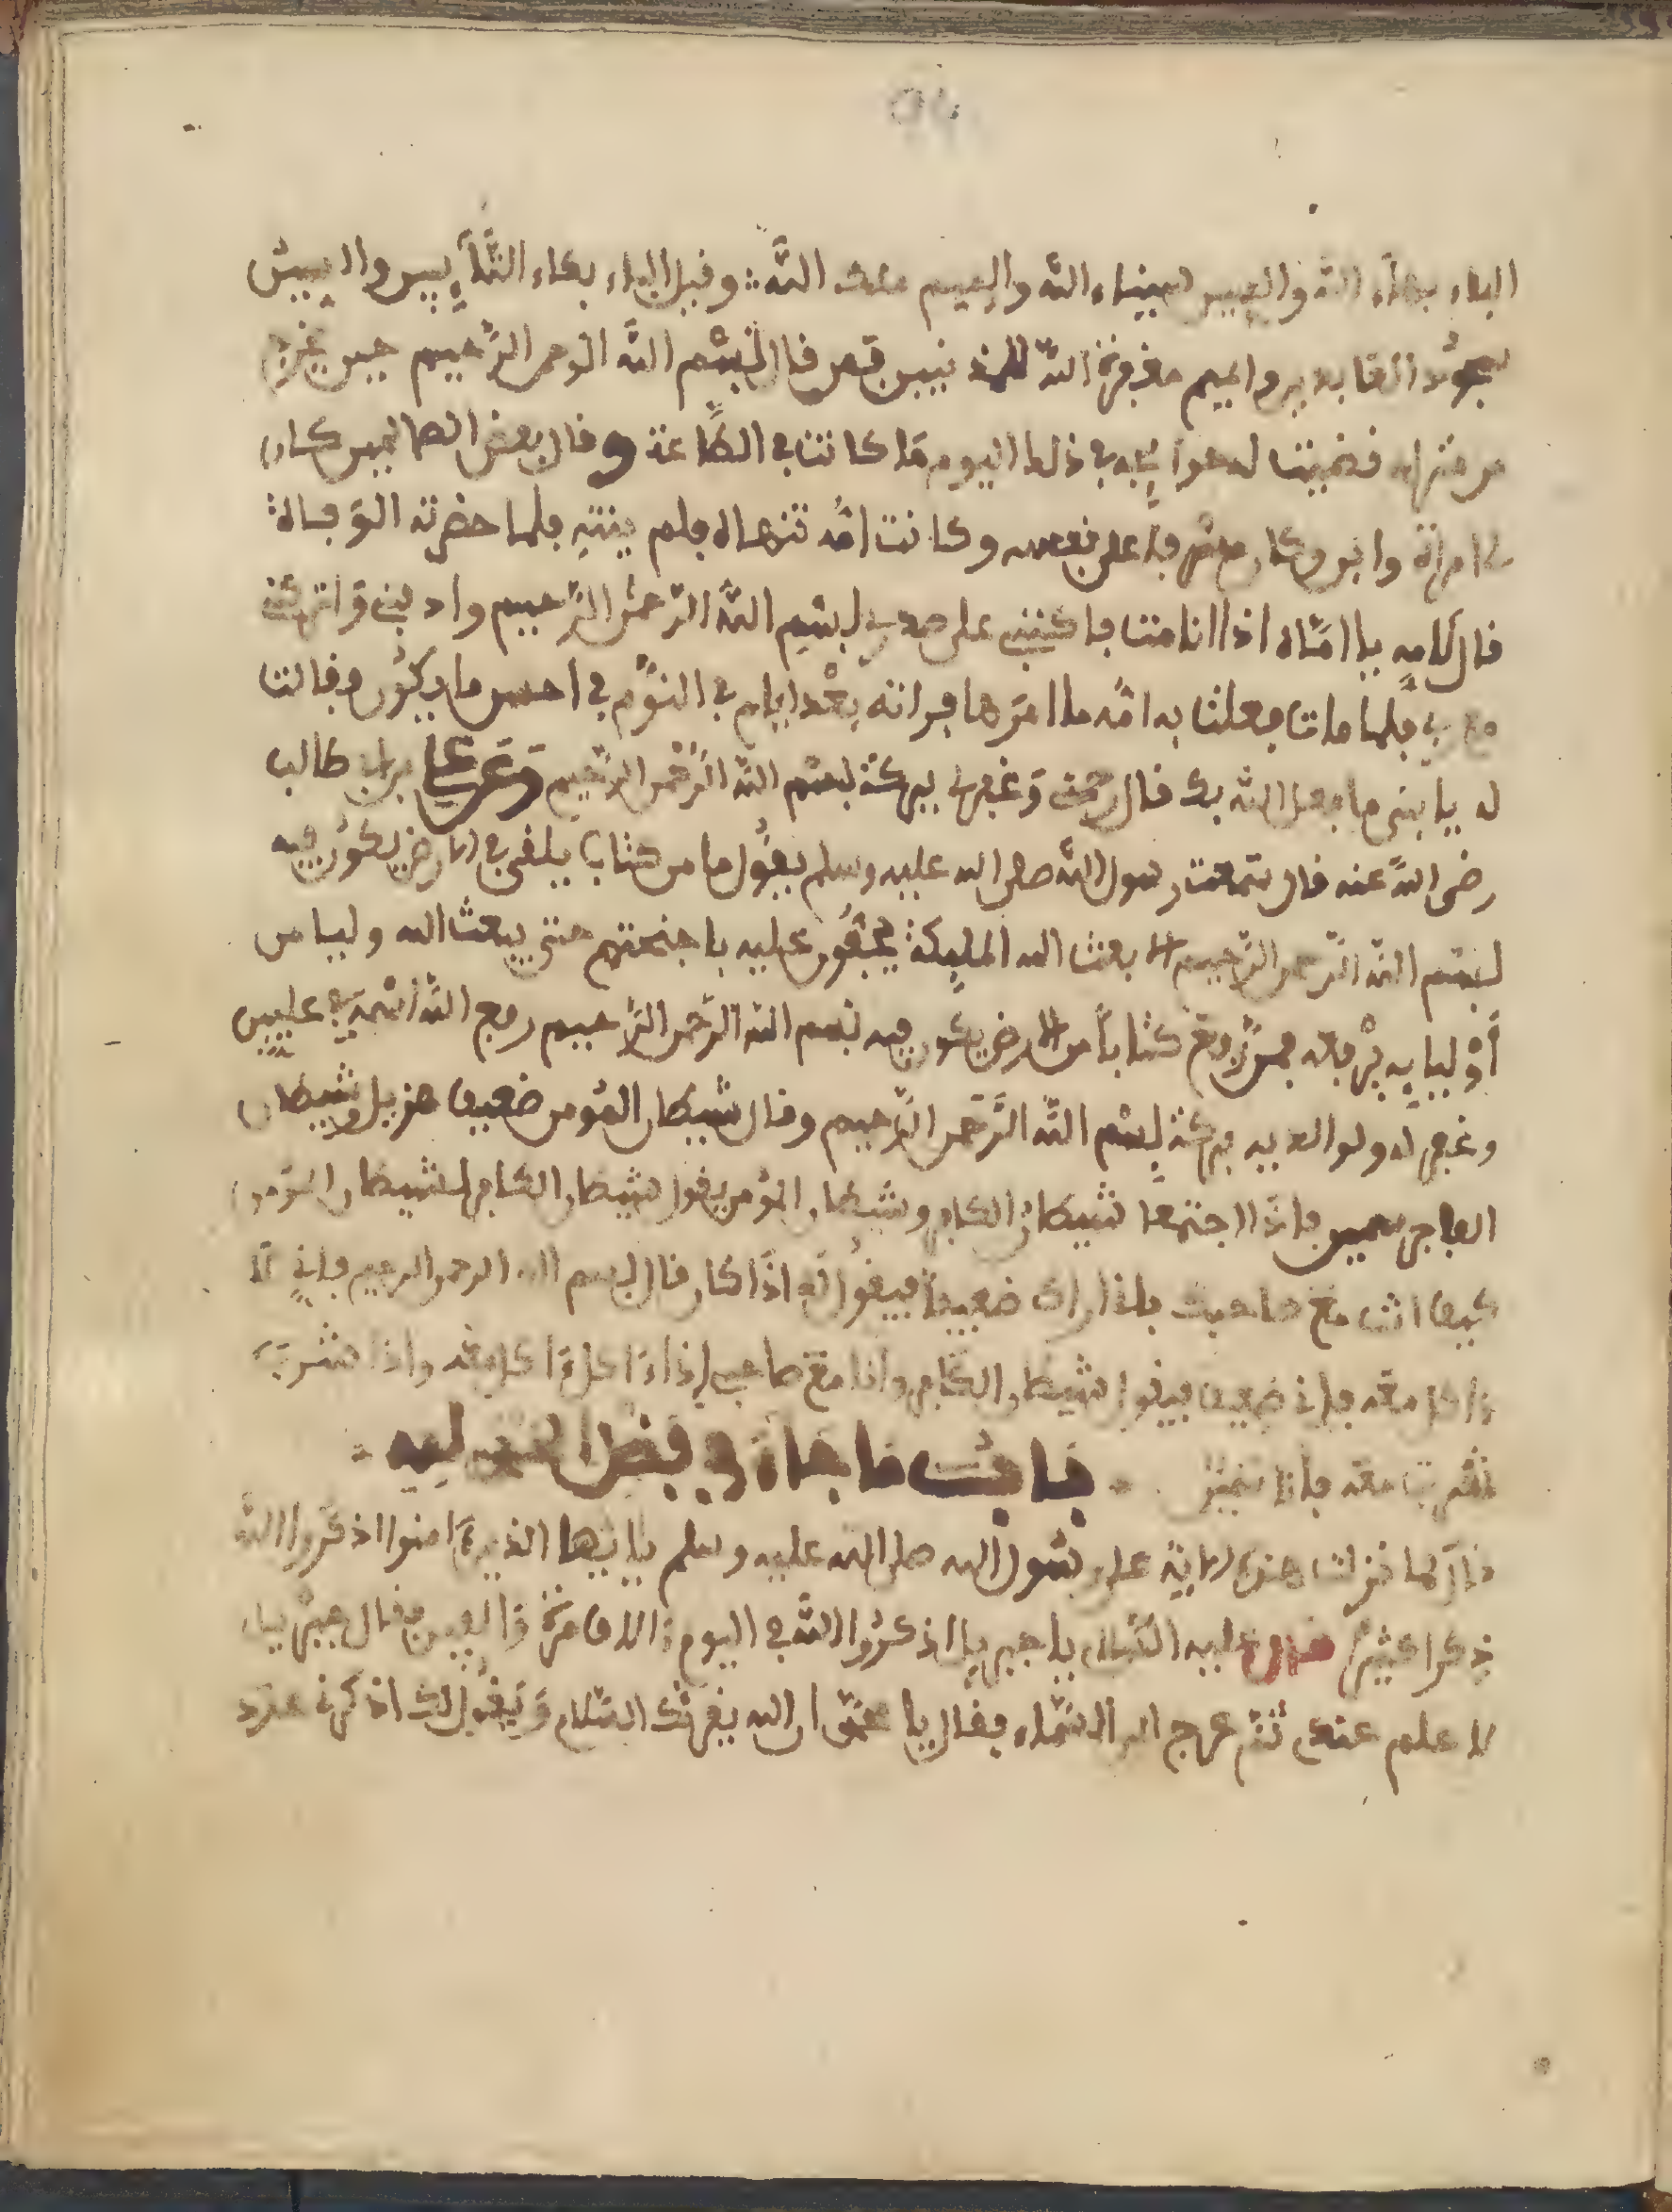 الباء بهاء الله والسين سناء الله والميم ملك الله وقيل الباء بكاء التَّآئِبين والسين
سجود العابدين والميم مغفرة الله للمذنبين فمن قال بِسْم الله الرحمن الرَّحيم حين يخرج
من منزله قضيت له حوآئجه في ذلك اليوم مَا كانت في الطَّاعة وقال بعض الصالحين كان
امرأة وابن وكان مسرفا على نفسه وكانت امُّه تنهاه فلم ينته فلما حضرته الوَفاة
قال لامِه يا امَّاه اذا انا مت فاكتبي على صدري بِسْمِ اللَّه الرّحمن الرّحيم وادفني
فلما مات فعلت به امُّه ما امرَها فراته بعْد ايام في النوْم في احسن ما يكُون فقالت
له يا بنى ما فعل الله بك قال رحمني وَغفر لي ببركة بسم الله الرّحمن الرّحيم وَعَن علي بن ابي طالب
رضى اللَّه عنه قال سَمعت رسول اللَّه صلى الله عليه وسلم يقُول ما من كتاب يلقى في الارض يكُون فيه
بسم اللَّه الرّحمن الرّحيم الا بعث الله الملئكة يحفُّون عليه باجنحتهم حتى يبعث الله وليا من
أوْليآئه يرْفعه فمن رَفعَ كتاباً من الارض يكون فيه بسم اللَّه الرّحمن الرَّحيم رفع اللَّه اسْمه في عليين
وغفر له ولوالديه ببركة بِسْم اللَّه الرَّحْمن الرَّحيم وقال شيطان المؤمن ضعيف هزيل وشيطان
الفاجر سمين فاذَا اجتمعَا شيطانُ الكافر وشيطان المؤمن يقول شيطان الكافر لشيطان المؤمن
كيف انت معَ صاحبك فانا اراك ضعيفاً فيقُول له اذَا كان قال بسم الله الرحمن الرحيم فاني لا
ءاكل معَه فانا ضعيف فيقول شيطان الكافر وانا معَ صاحبي إذا اكل ءَاكل معَه واذا شربَ
شربت معَه فانا سمين بَابُ مَا جَاءَ في فضل
قال لما نزلت هذه الاية على رسول الله صلى الله عليه وسلم يا ايها الذين ءَامنوا اذكروا اللَّه
ذِكرا كثيرًا قال عليه السَّلام يا جبريل اذكرُوا اللَّه في اليوم فقال جبريل
لا علم عندي ثُمّ عرج الى السَّماء فقال يا محمّد ان الله يقرئك السَّلام وَيقُول لك اذكرني عدد